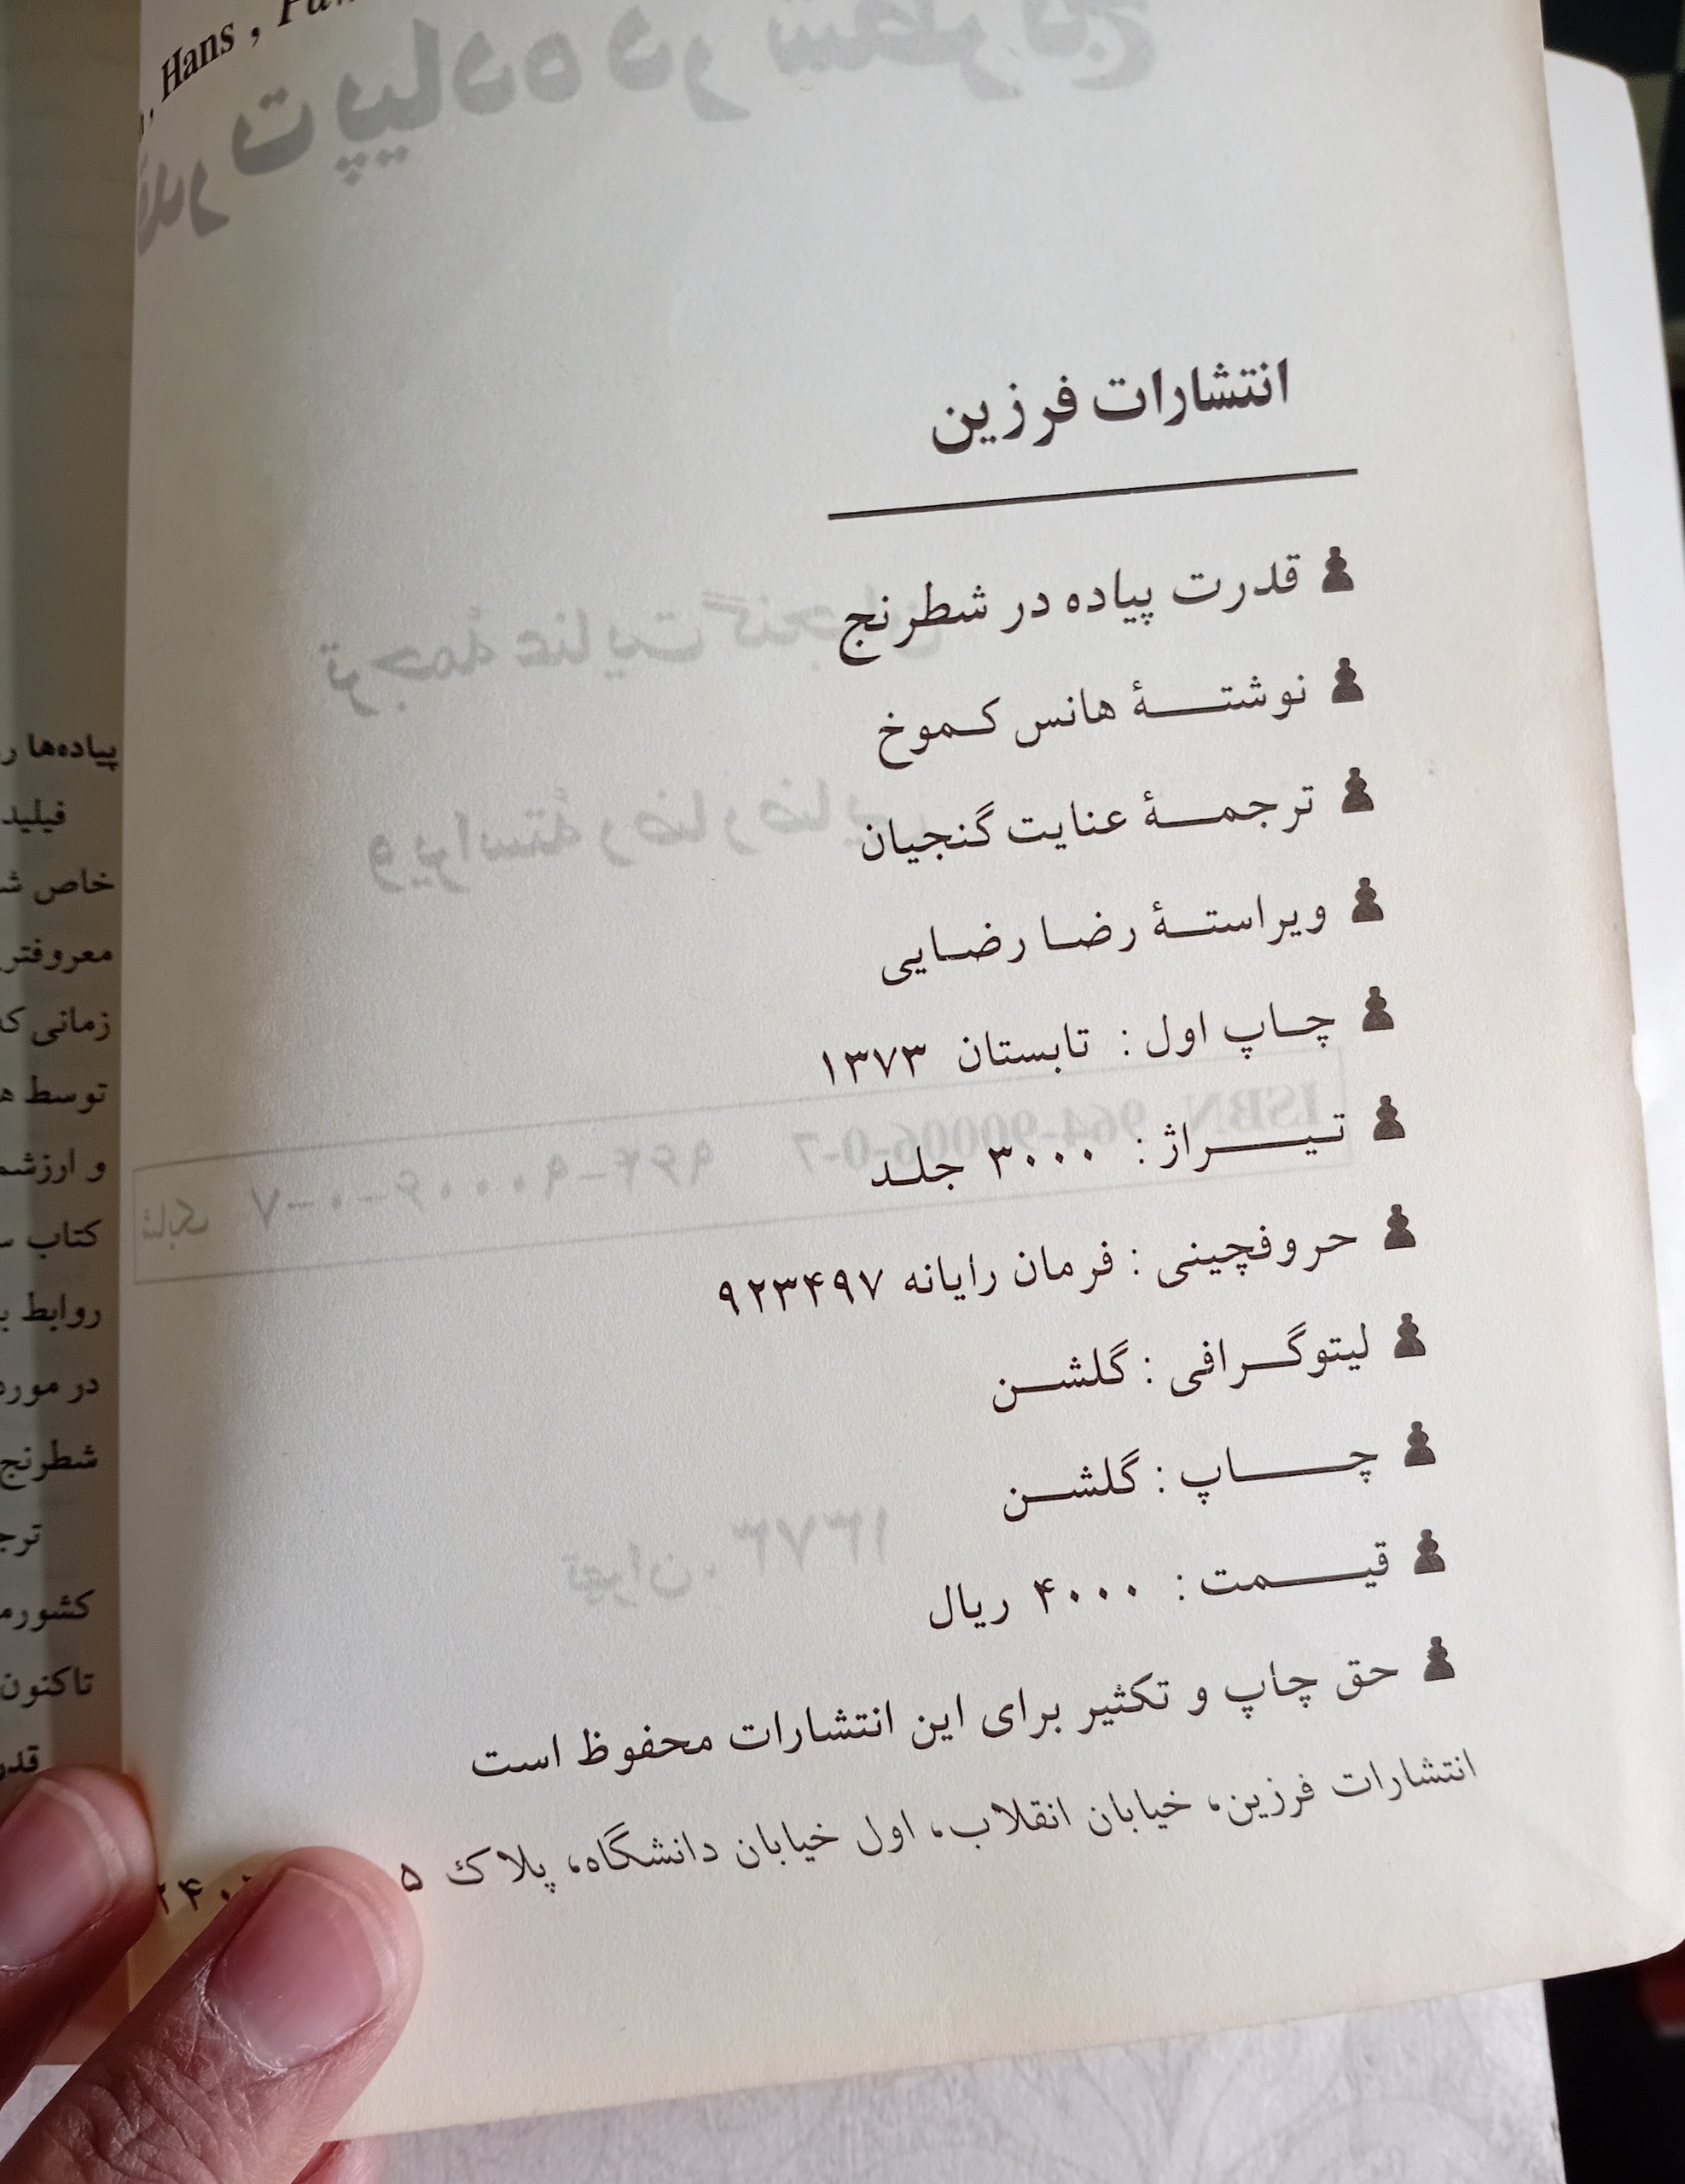 Hans ,
انتشارات فرزین
قدرت پیاده در شطرنج
نوشتهٔ هانس کموخ
ترجمهٔ عنایت گنجیان
ویراستهٔ رضا رضایی
چاپ اول : تابستان ۱۳۷۳
تیراژ : ۳۰۰۰ جلد
حروفچینی : فرمان رایانه ۹۲۳۴۹۷
لیتوگرافی : گلشن
چاپ : گلشن
قیمت : ۴۰۰۰ ریال
حق چاپ و تکثیر برای این انتشارات محفوظ است
انتشارات فرزین، خیابان انقلاب، اول خیابان دانشگاه، پلاک ۵
پیاده‌ها
خاص
زمانی
توسط
کتاب
روابط
در مورد
شطرنج
تاکنون